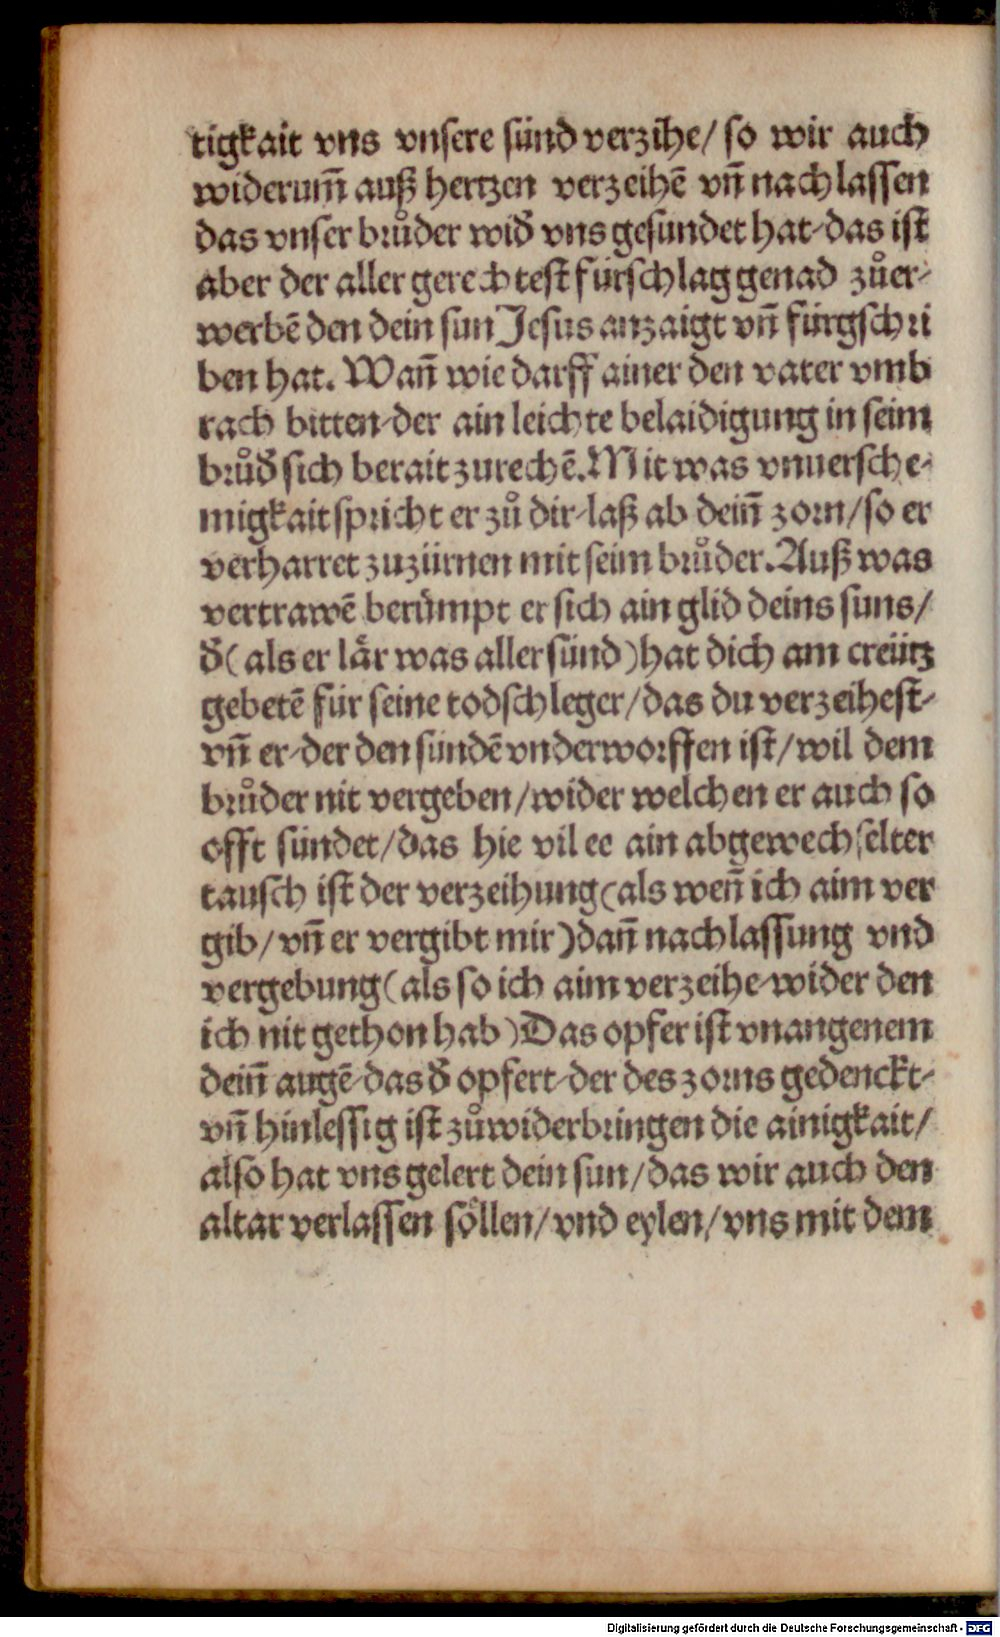 tigkait vns vnsere sünd verzihe/ so wir auch
widerum̄ auß hertzen verzeihē vn̄ nachlassen
das vnser brůder wid̓ vns gesundet hat-das ist
aber der aller gerechtest fürschlag genad zůer-
werbē den dein sun Jesus anzaigt vn̄ fürgschri
ben hat. Wan̄ wie darff ainer den vater vmb
rach bitten-der ain leichte belaidigung in seim
brůd̓ sich berait zurechē. Mit was vnuersche-
migkait spricht er zů dir-laß ab dein̄ zorn/so er
verharret zuzürnen mit seim brůder. Auß was
vertrawē berümpt er sich ain glid deins suns/
d̓ (als er lår was aller sünd) hat dich am creütz
gebetē für seine todschleger/das du verzeihest-
vn̄ er-der den sündē vnderworffen ist/wil dem
brůder nit vergeben/wider welchen er auch so
offt sündet/das hie vil ee ain abgewechselter
tausch ist der verzeihung (als wen̄ ich aim ver
gib/ vn̄ er vergibt mir) dan̄ nachlassung vnd
vergebung (als so ich aim verzeihe-wider den
ich nit gethon hab) Das opfer ist vnangenem
dein̄ augē-das d̓ opfert-der des zorns gedenckt-
vn̄ hinlessig ist zůwiderbringen die ainigkait/
also hat vns gelert dein sun/das wir auch den
altar verlassen söllen/vnd eylen/vns mit dem
Digitalisierung gefördert durch die Deutsche Forschungsgemeinschaft - DFG